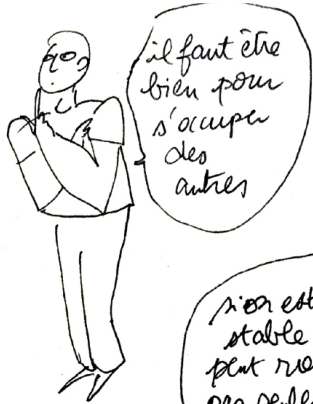 il faut être
bien pour
s'occuper
des
autres
si on est
stable
peut